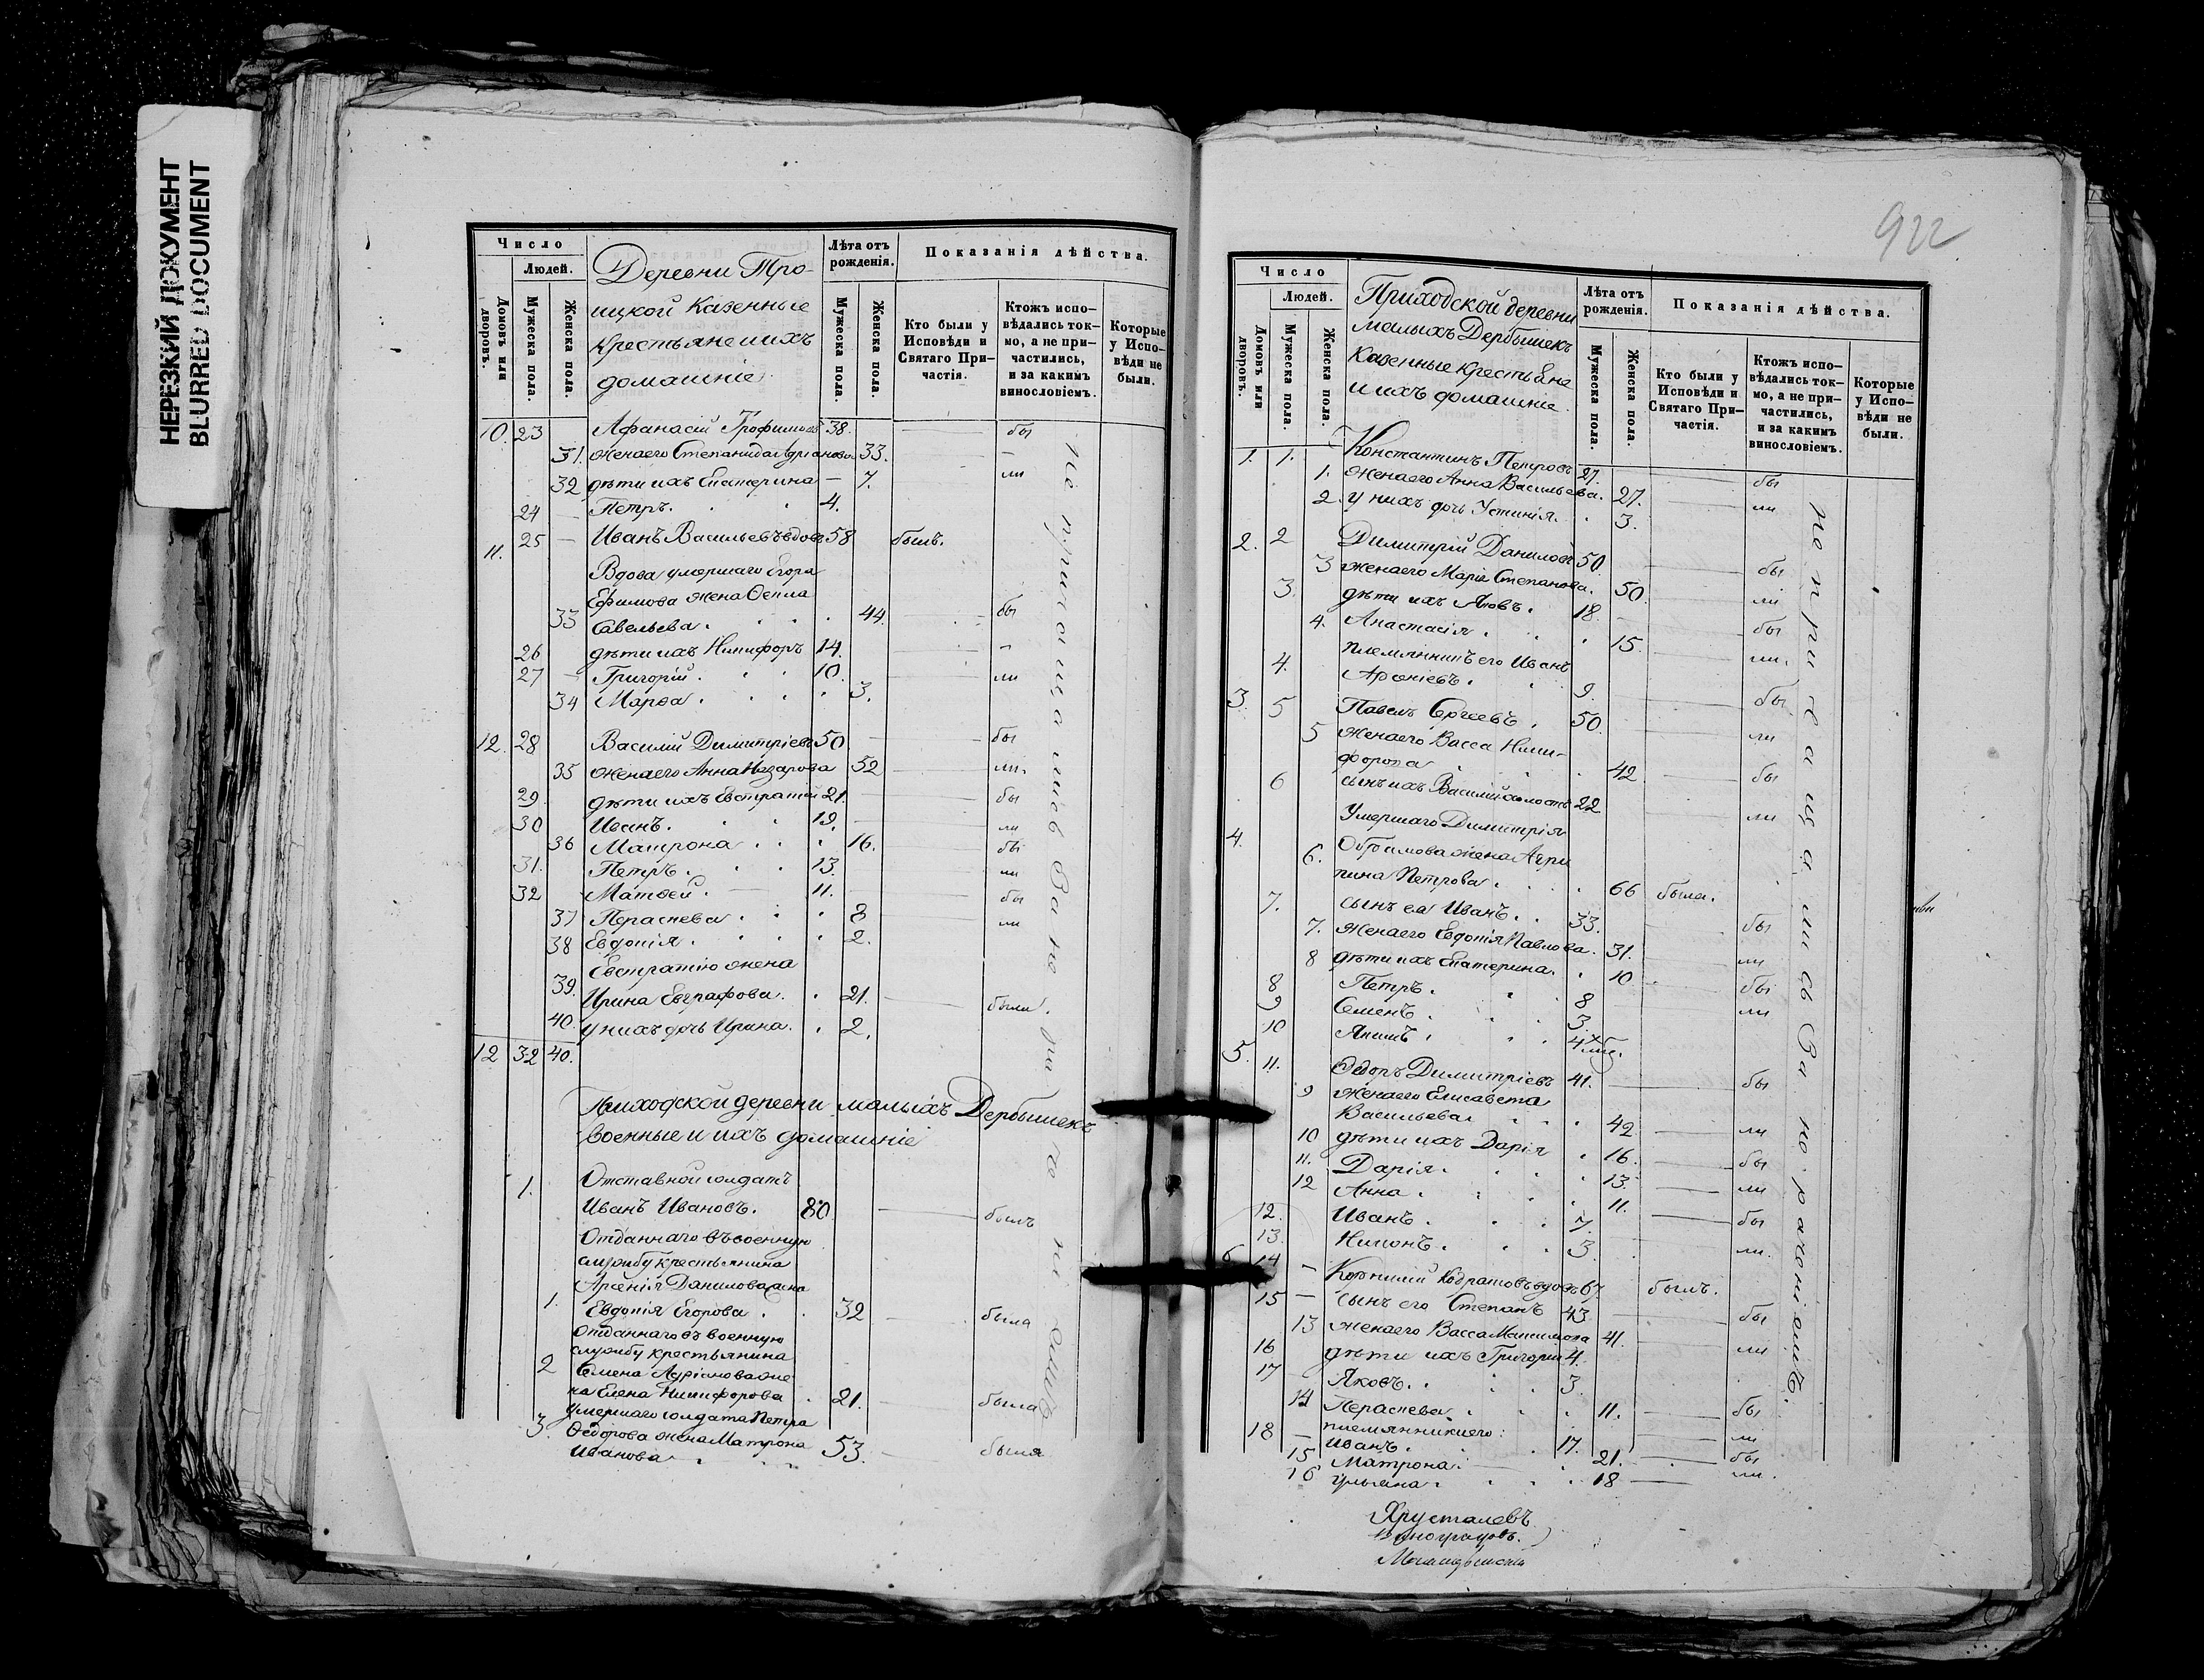 НЕРЕЗКИЙ ДОКУМЕНТ
BLURRED DOCUMENT
Число
Людей.
Домовъ или дворовъ.
Мужеска пола.
Женска пола.
Деревни Тро-
ицкой Казенные
крестьяне и ихъ
домашніе
Лѣта отъ рожденія.
Мужеска пола.
Женска пола.
Показанія дѣйства.
Кто были у Исповѣди и Святаго При-частія.
Ктожъ испо-вѣдались ток-мо, а не при-частились, и за какимъ винословіемъ.
Которые у Испо-вѣди не были.
10. 23 Афанасій Трофимовъ 38. бы
31. жена его Степанида Адріанова 33. —
32 дѣти ихъ Екатерина — 7. ли
24 — Петръ. 4.
11. 25 — Иванъ Васильевъ вдовъ 58 былъ.
Вдова умершаго Егора
Ефимова жена
33 Савельева. 44. бы
26 дѣти ихъ Никифоръ 14.
27 — Григорій. 10. ли
34 Марѳа. 3.
12. 28 Василій Димитріевъ 50 бы
35 жена его Анна Назарова 52 ли.
29. дѣти ихъ Евстратій 21. бы
30 Иванъ. 19. ли
36 Матрона 16. бы
31. Петръ. 13. ли
32 Матѳей. 11. бы
37 Параскева 8 ли
38 Евдокія. 2.
Евстратію жена
39. Ирина Евграфова. 21. были.
40. у нихъ дочь Ирина. 2.
12 32 40.
Приходской деревни малыхъ Дербышекъ
военные и ихъ домашніе
Отставной солдатъ
1. Иванъ Ивановъ. 80 былъ
Отданнаго въ военную
службу крестьянина
Арсенія Данилова жена
1. Евдокія Егорова. 32 была
Отданнаго въ военную
службу крестьянина
2 Семена Адріанова же
на Елена Никифорова 21. была
умершаго солдата Петра
3. Ѳедорова жена Матрона
Иванова 53. была
922
Число
Людей.
Домовъ или дворовъ.
Мужеска пола.
Женска пола.
Приходской деревни
малыхъ Дербышекъ
Казенные крестьяне
и ихъ домашніе.
Лѣта отъ рожденія.
Мужеска пола.
Женска пола.
Показанія дѣйства.
Кто были у Исповѣди и Святаго При-частія.
Ктожъ испо-вѣдались ток-мо, а не при-частились, и за какимъ винословіемъ.
Которые у Испо-вѣди не были.
1. 1. Константинъ Петровъ 27. бы
1. жена его Анна Васильева. 27. ли
2. у нихъ дочь Устинія. 3.
2. 2 Димитрій Даниловъ 50. бы
3 жена его Марія Степанова. 50. ли
3. дѣти ихъ Яковъ. 18. бы
4. Анастасія. 15. ли.
племянникъ его Иванъ
4. 9. бы
3. 5 Павелъ Сергеевъ. 50. ли
5 жена его Васса Ники-
форова 42 бы
6 сынъ ихъ Василій холостъ 22 ли
4. Умершаго Димитрія
6. жена Агри
пина Петрова. 66 была.
7. сынъ ея Иванъ. 33. бы
7. жена его Евдокія Павлова. 31. ли
8 дѣти ихъ Екатерина. 10 бы
8 Петръ. 8 ли
9 Семенъ. 3.
10
5. 11. Ѳедоръ Димитріевъ 41. бы
9 жена его Елисавета
Васильева. 42 ли
10 дѣти ихъ Дарія 16. бы
11. Дарія. 13. ли
12 Анна. 11. бы
12. Иванъ. 7.
13. 3. ли.
6 14 — вдовъ 67 былъ.
15 — сынъ его Степанъ 43 бы
13 жена его Васса Максимова 41. ли
16 дѣти ихъ Григорій 4.
17 Яковъ. 3.
14 Параскева. 11. бы
18 — племянники его:
Иванъ. 17. ли
15 Матрона. 21. бы
16 Ульяна. 18 ли.
не причащались за нераченіемъ.
Хрусталевъ
Виноградовъ.